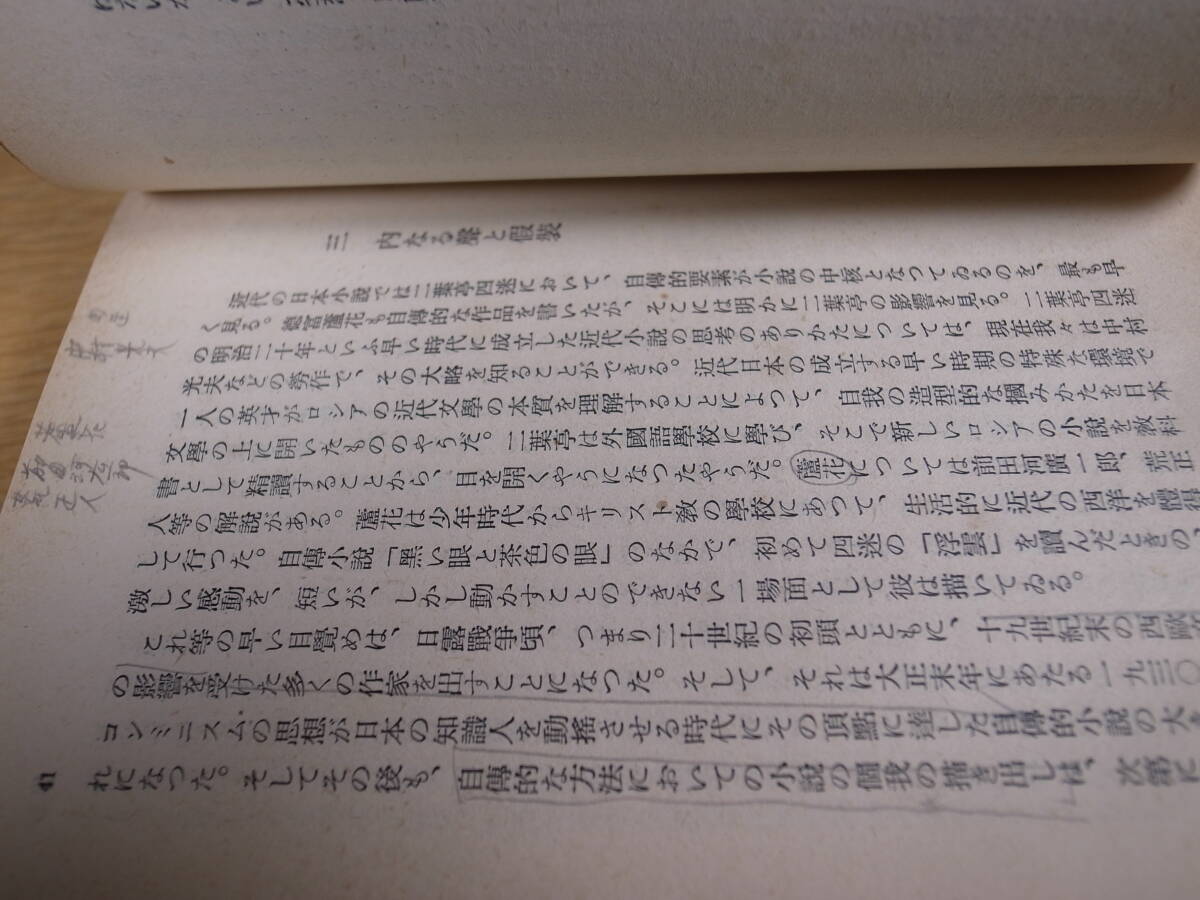 三　内なる聲と假裝
近代の日本小說では二葉亭四迷において、自傳的要素が小說の中核となつてゐるのを、最も早
く見る。德富蘆花も自傳的な作品を書いたが、そこには明かに二葉亭の影響を見る。二葉亭四迷
の明治二十年といふ早い時代に成立した近代小說の思考のありかたについては、現在我々は中村
光夫などの勞作で、その大略を知ることができる。近代日本の成立する早い時期の特殊な環境で
一人の英才がロシアの近代文學の本質を理解することによつて、自我の造型的な摑みかたを日本
文學の上に開いたもののやうだ。二葉亭は外國語學校に學び、そこで新しいロシアの小說を敎科
書として精讀することから、目を開くやうになつたやうだ。蘆花については前田河廣一郞、荒正
人等の解說がある。蘆花は少年時代からキリスト敎の學校にあつて、生活的に近代の西洋を體得
して行つた。自傳小說「黑い眼と茶色の眼」のなかで、初めて四迷の「浮雲」を讀んだときの、
激しい感動を、短いが、しかし動かすことのできない一場面として彼は描いてゐる。
これ等の早い目覺めは、日露戰爭頃、つまり二十世紀の初頭とともに、十九世紀末の西歐
の影響を受けた多くの作家を出すことになつた。そして、それは大正末年にあたる一九三〇
コンミニスムの思想が日本の知識人を動搖させる時代にその頂點に達した自傳的小說の大
れになつた。そしてその後も、自傳的な方法においての小說の個我の描き出しは、次第に
41
四迷
中村光夫
蘆花
荒正人